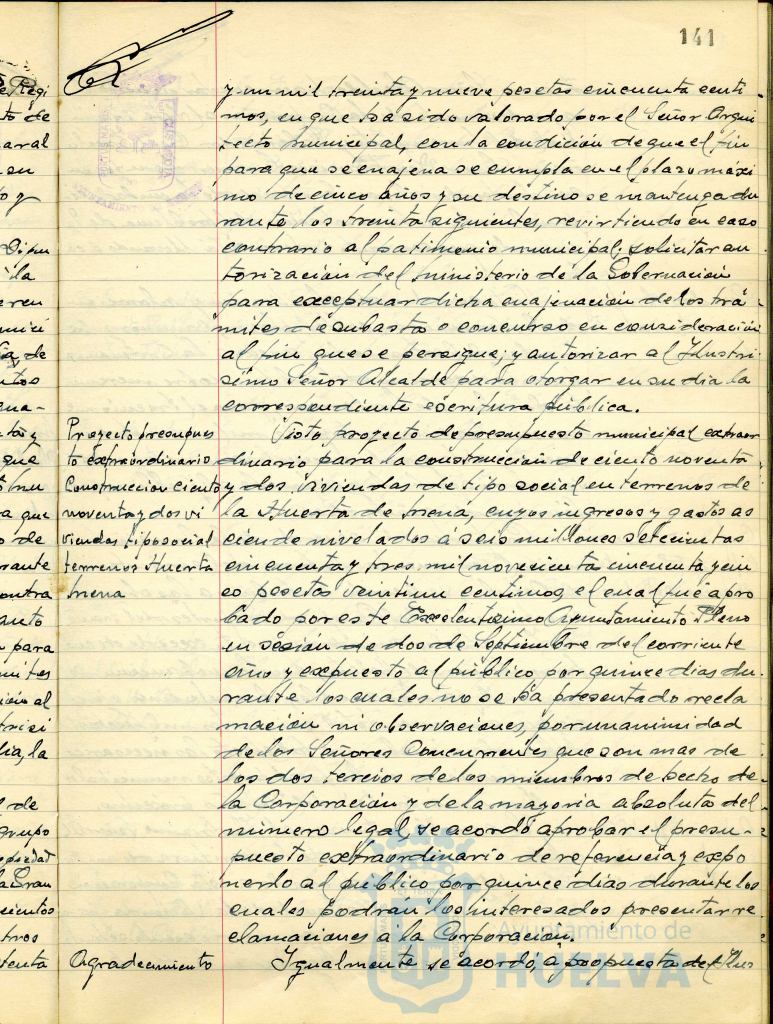 141
y un mil treinta y nueve pesetas cincuenta centi
mos, en que ha sido valorado por el Señor Arqui
tecto Municipal, con la condición de que el fin
para que se enajena se cumpla en el plazo máxi
mo de cinco años y su destino se mantenga du
rante los treinta siguientes, revirtiendo en caso
contrario al patrimonio municipal; solicitar au
torización del Ministerio de la Gobernación
para exceptuar dicha enajenación de los trá
mites de subasta o concurso en consideración
al fin que se persigue; y autorizar al Ilustri
simo Señor Alcalde para otorgar en su dia la
correspondiente escritura pública.
Proyecto presupues
to extraordinario
Construccion ciento
noventa y dos vi
viendas tipo social
terrenos Huerta
Mena
Visto proyecto de presupuesto municipal extraor
dinario para la construcción de ciento noventa
y dos viviendas de tipo social en terrenos de
la Huerta de Mena, cuyos ingresos y gastos as
ciende nivelados á seis millones setecientas
cincuenta y tres mil novecienta cincuenta y cin
co pesetas veintiun centimos, el cual fué apro
bado por este Excelentisimo Ayuntamiento Pleno
en sesión de dos de Septiembre del corriente
año y expuesto al público por quince dias du
rante los cuales no se ha presentado recla
mación ni observaciones, por unanimidad
de los Señores Concurrentes que son mas de
los dos tercios de los miembros de hecho de
la Corporación y de la mayoria absoluta del
número legal, se acordó aprobar el presu-
puesto extraordinario de referencia y expo
nerlo al público por quince dias durante los
cuales podran los interesados presentar re
clamaciones á la Corporación.
Agradecimiento
Igualmente se acordó, a propuesta del Ilus
Ayuntamiento de
HUELVA